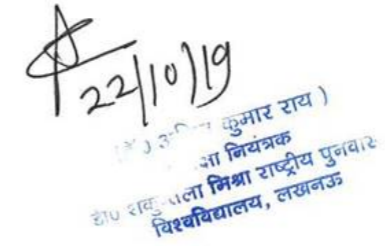 22/10/19
कुमार राय )
नियंत्रक
मिश्रा राष्ट्रीय पुनर्वास
विश्वविद्यालय, लखनऊ